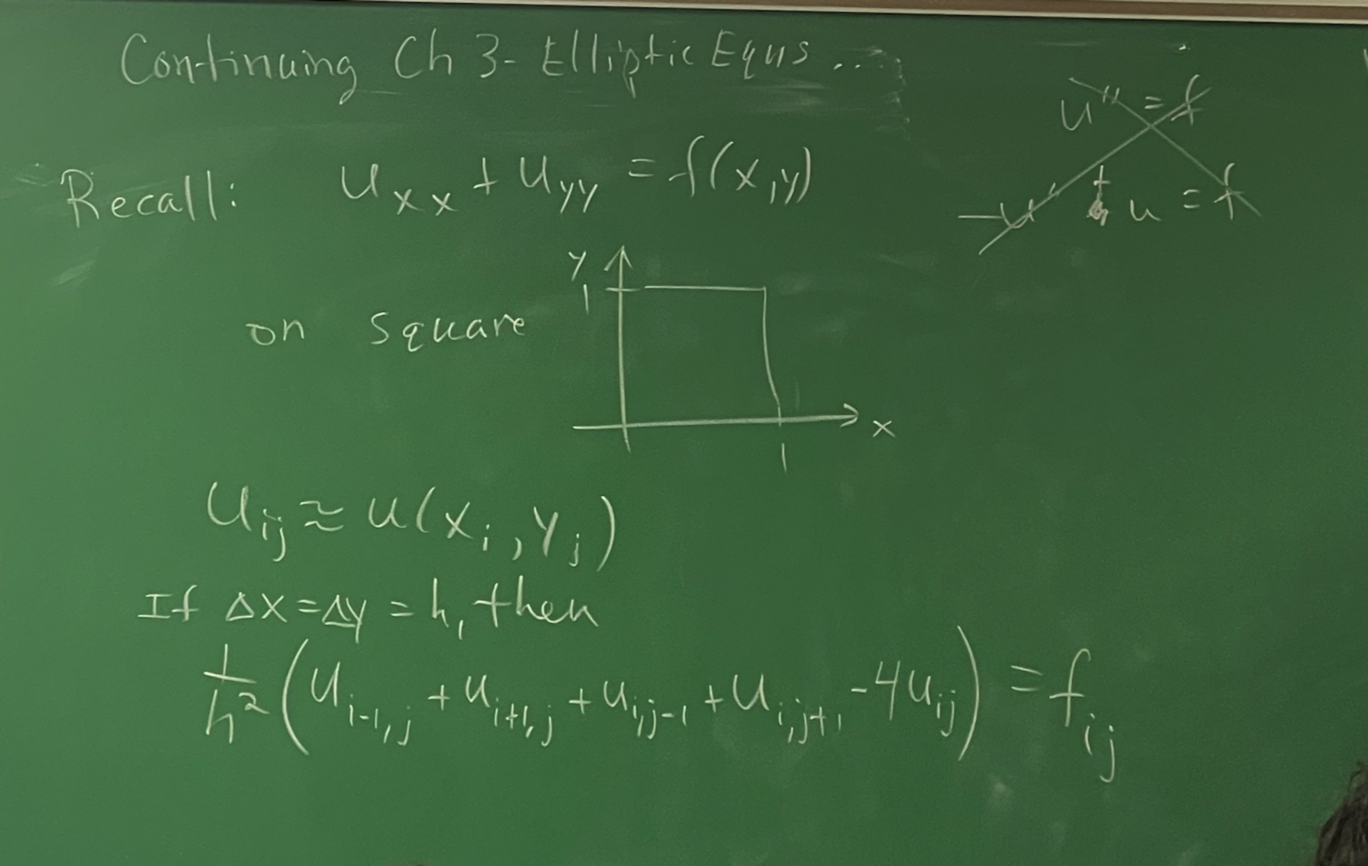 Continuing Ch 3 - Elliptic Equs ...
u'' = f
Recall: u_xx + u_yy = f(x,y)
-u'' + u = f
y
1
on square
x
1
U_ij ≈ u(x_i, y_j)
If Δx = Δy = h, then
1/h² (U_i-1,j + U_i+1,j + U_i,j-1 + U_i,j+1 - 4U_ij) = f_ij